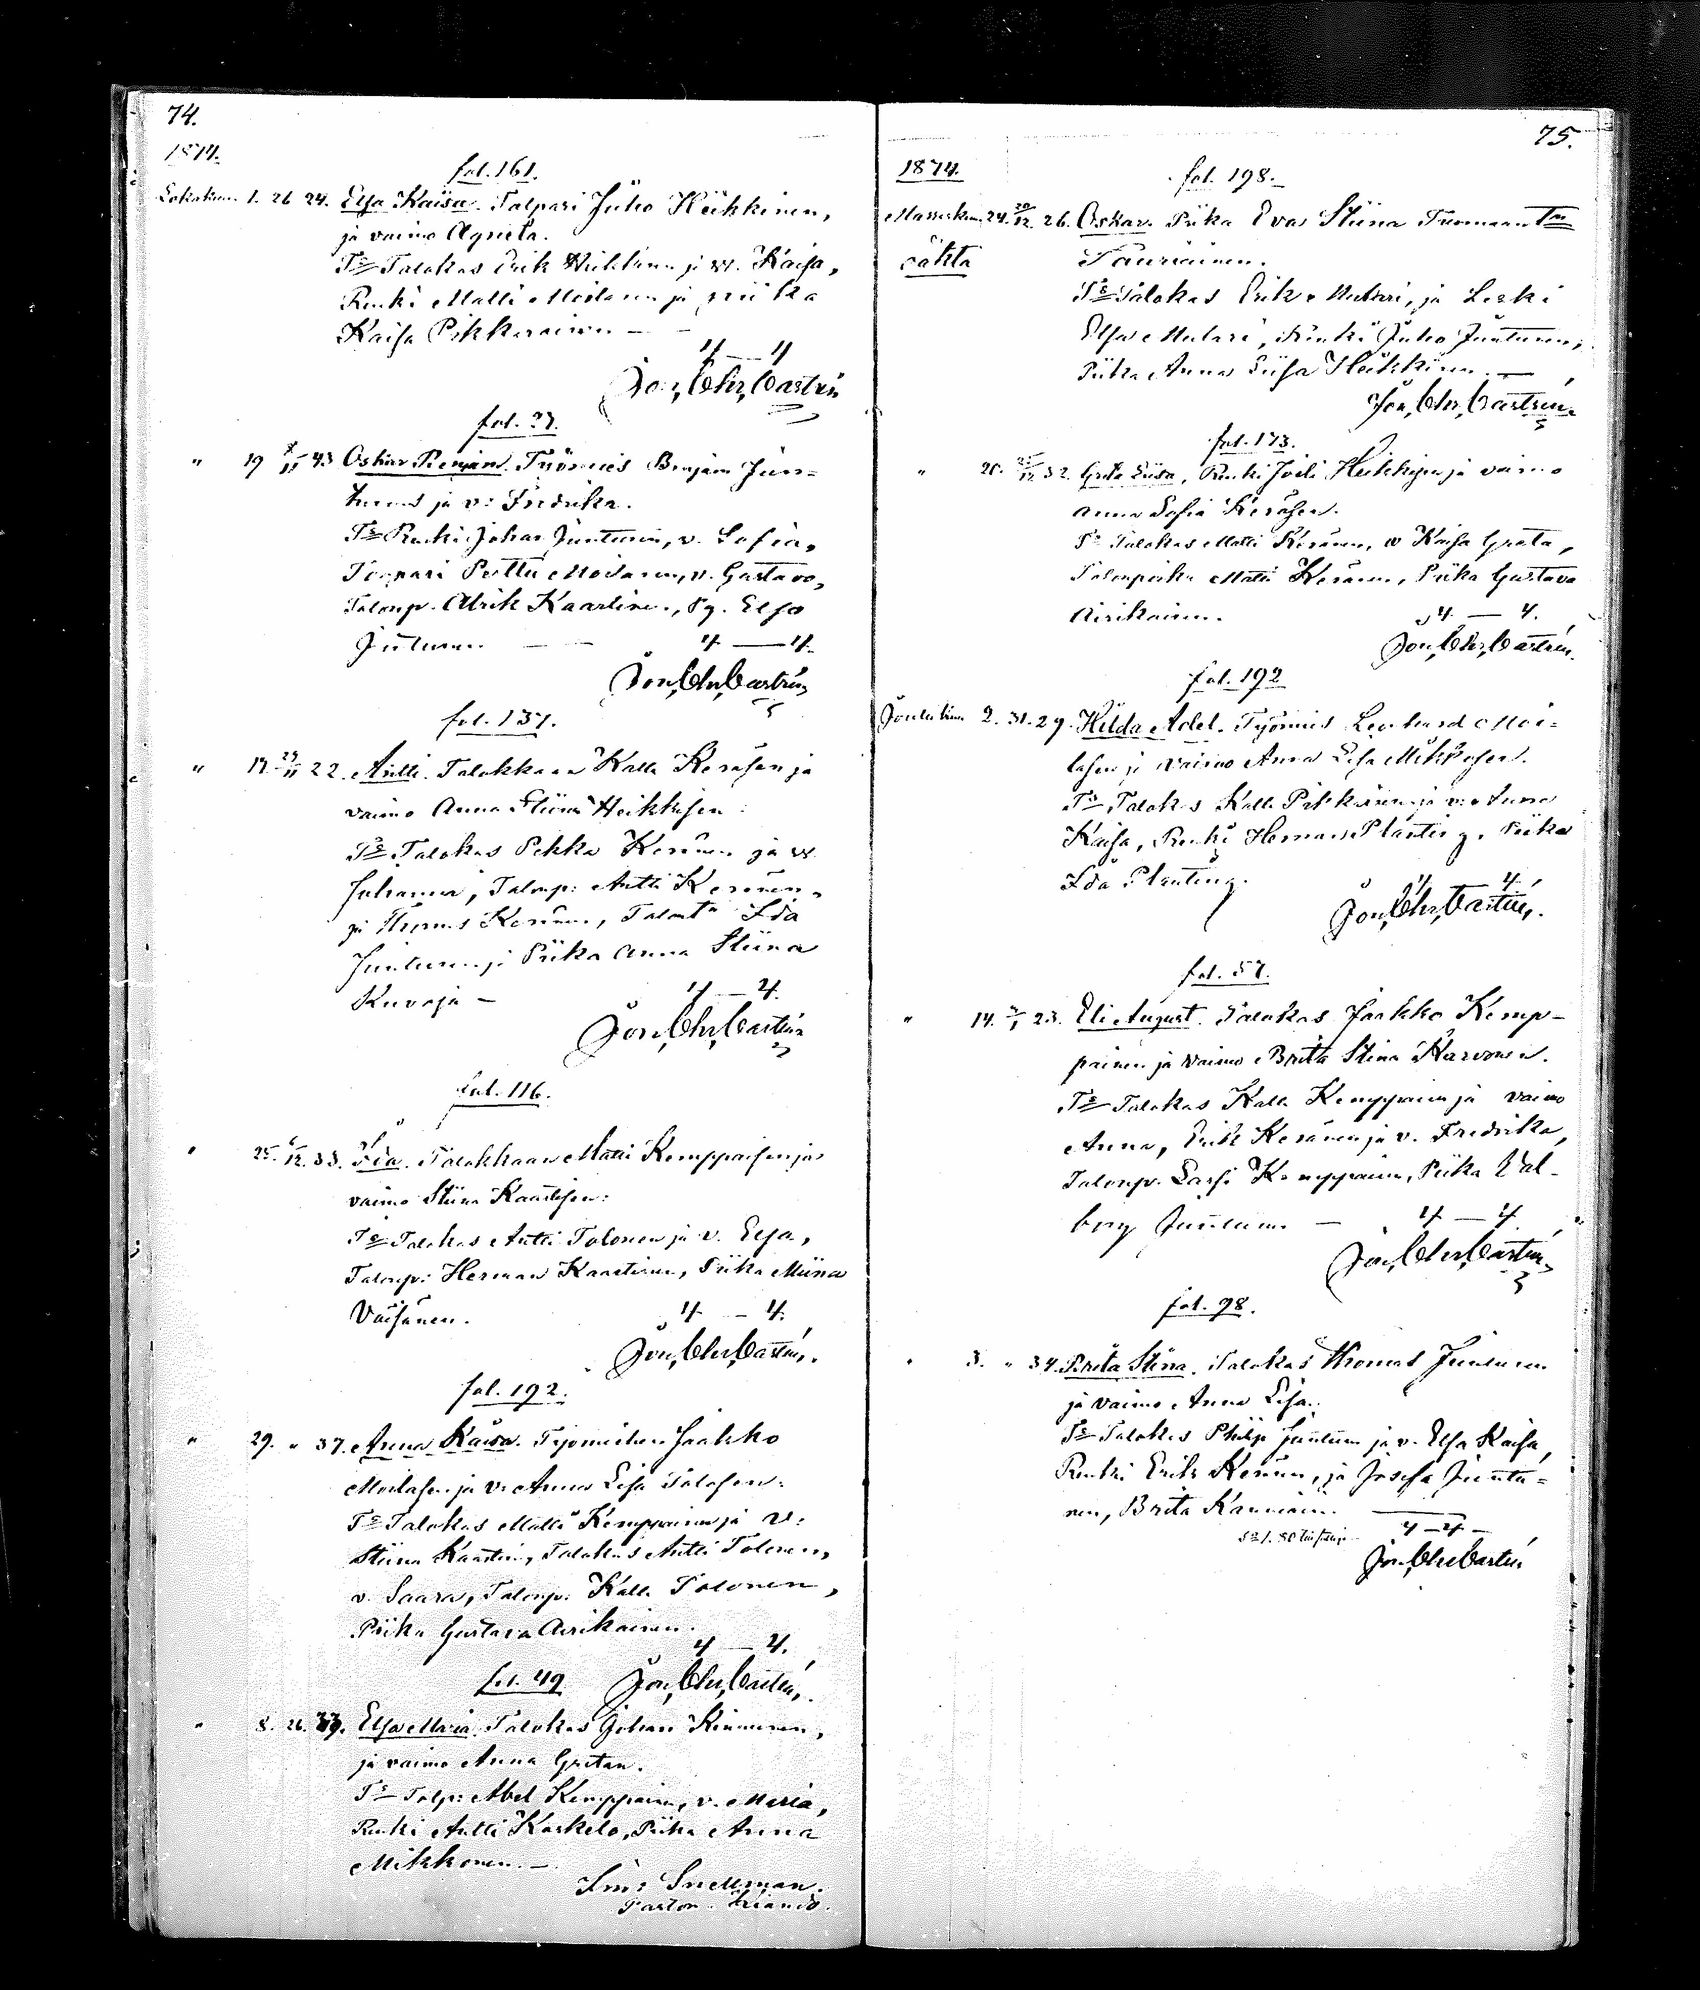 74.
1874.
fol. 161.
Lokakuu. 1. 26 24. Elsa Kaisa. Talpari Juho Heikkinen,
ja vaimo Agneta.
Ts Talokas Erik Heikkinen ja w. Kaisa,
Renki Matti Moilanen ja piika
Kaisa Pikkarainen —
4 — 4
Jon, Chr, Castrén
fol.
" 19 43 Oskar Benjam. Työmies Benjam Jun-
tunens ja v: Fredrika.
Ts Renki Johan Juntunen, v. Sofia,
Torpari Perttu Moilanen, v. Gustava,
Talonp. Alrik Kaartinen, Pg. Elsa
Juntunen — 4 — 4.
Jon, Chr, Castrén
fol. 137.
" 19. 29/11 22. Antti. Talokkaan Kalle Keräsen ja
vaimo Anna Stiina Heikkisen:
Ts Talokas Pekka Keränen ja w.
Johanna, Talonp: Antti Keränen,
ja Thomas Keränen, Ida
Juntunen ja Piika Anna Stiina
Kuvaja — 4 — 4.
Jon, Chr, Castrén
fol. 116.
" 25. 6/12. 33. Ida. Talokkaan Matti Kemppaisen ja
vaimo Stina Kaartisen:
Ts Talokas Antti Tolonen ja v. Elsa,
Talonp: Herman Kaartinen, Piika Miina
Väisänen. 4 — 4.
Jon, Chr, Castrén.
fol. 192.
" 29. " 37. Anna Kaisa. Työmiehen Jaakko
Moilasen ja v: Anna Lisa Tolosen:
Ts Talokas Matti Kemppainen ja v:
Stiina Kaartin, Talokas Antti Tolonen,
v. Saara, Talonp: Kalle Tolonen,
Piika Gustava Airikainen.
4 — 4.
fol. 49 Jon, Chr, Castrén,
" 8. 26. Elsa Maria. Talokas Johan Kinnunen,
ja vaimo Anna Gretan.
Ts Talp: Abel Kemppainen, v. Maria,
Renki Antti Karkelo, Piika Anna
Mikkonen. —
Snellman.
Pastor.
75.
1874.
fol. 198.
Marraskuu 24. 20/12. 26. Oskar. Piika Eva Stiina Tuomaan
Tauriainen.
cähtä
Ts Talokas Erik Mulari, ja Leski
Elsa Mulari, Renki Juho Juntunen,
Piika Anna Liisa Heikkinen. —
Jon, Chr, Castrén.
fol. 173.
" 20. 32. Greta Liisa, Renki Joeli Heikkisen ja vaimo
Anna Sofia Keräsen.
Ts Talokas Matti Keränen, w Kaisa Greta,
Talonpoika Matti Keränen, Piika Gustava
Airikainen. 4 — 4.
Jon, Chr, Castrén.
fol. 192
Joulukuu 2. 31. 29. Hilda Adel. Työmies Leonhard Moi-
lasen ja vaimo Anna Lisa Mikkosen.
Ts Talokas Kalle Pikkarainen ja v: Anna
Kaisa, Renki Herman Planting. Piika
Ida Planting. 4 4.
Jon, Chr, Castrén.
fol. 57.
" 14. 23. Eli August. Talokas Jaakko Kemp-
painen ja vaimo Brita Stina Karvonen.
Ts Talokas Kalle Kemppainen ja vaimo
Anna, Erik Keränen ja v. Fredrika,
Talonp. Lassi Kemppainen, Piika Val-
borg Juntunen — 4 — 4.
Jon, Chr, Castrén
fol. 98.
" 3. " 34. Brita Stina. Talokas Thomas Juntunen
ja vaimo Anna Lisa.
Ts Talokas Philip Juntunen ja v. Elsa Kaisa,
Renki Erik Keränen, ja Josefa Juntu-
nen, Brita Kanniain.
4 — 4 —
Jon Chr Castrén